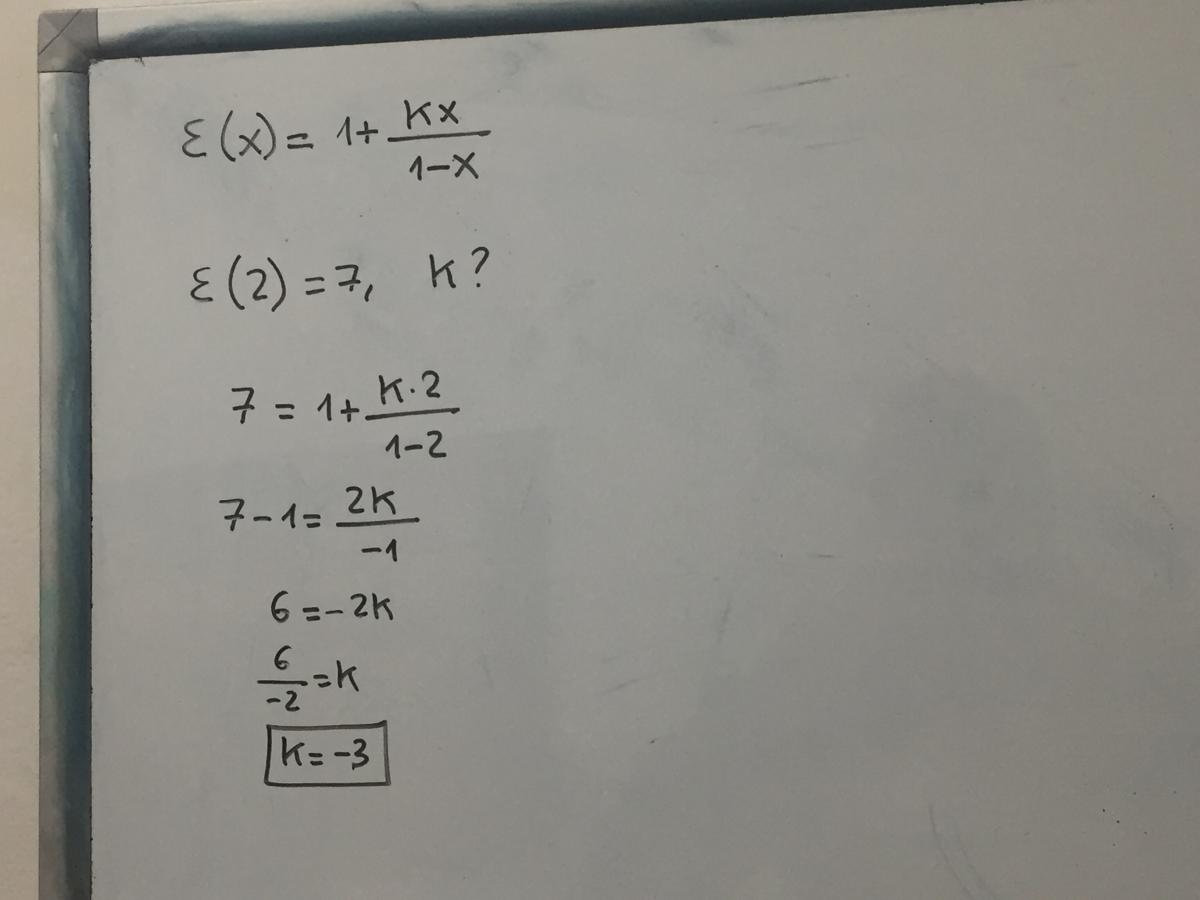 ε(x) = 1 + kx/(1-x)
ε(2) = 7, k?
7 = 1 + k·2/(1-2)
7 - 1 = 2k/-1
6 = -2k
6/-2 = k
k = -3